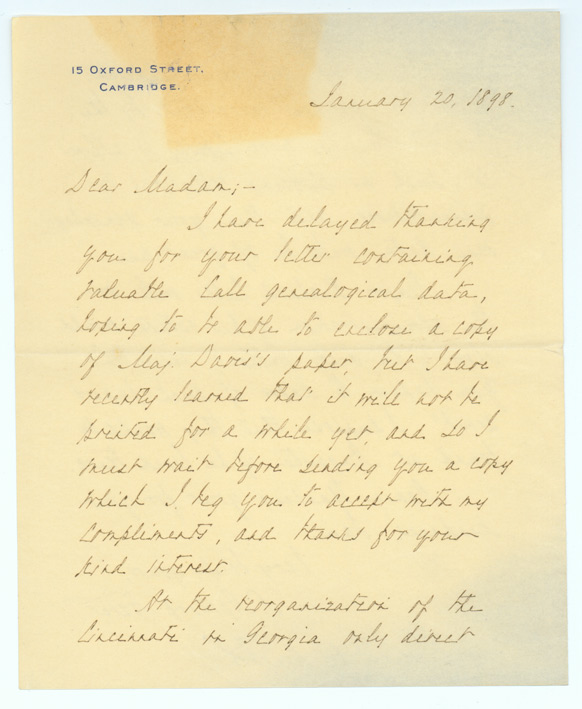 15 OXFORD STREET,
CAMBRIDGE.
January 20, 1898.
Dear Madam;—
I have delayed thanking
you for your letter containing
valuable Call genealogical data,
hoping to be able to enclose a copy
of Maj. Davis's paper, but I have
recently learned that it will not be
printed for a while yet, and so I
must wait before sending you a copy
which I beg you to accept with my
compliments, and thanks for your
kind interest.
At the reorganization of the
Cincinnati in Georgia only direct